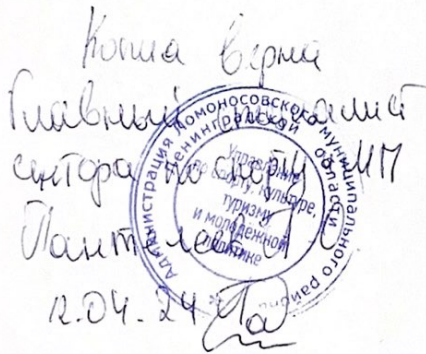 Копия верна
Главный специалист
сектора по спорту и МП
12.04.24
Администрация Ломоносовского муниципального района
Ленинградской области
Управление
по спорту, культуре,
туризму
и молодежной
политике